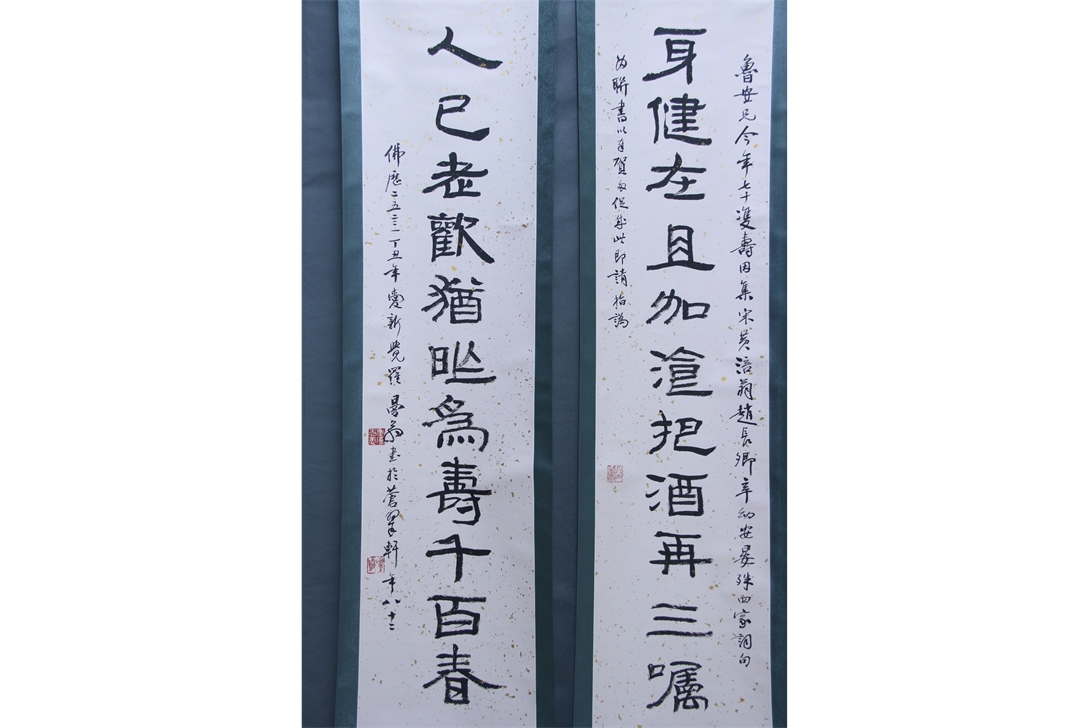 魯安兄今年七十雙壽因集宋黃涪翁趙長卿辛幼安晏殊四家詞句
身健在且加湌把酒再三囑
為聯書以賀匆促成此即請指譌
人已老歡猶昨為壽千百春
佛歷二五三一丁丑年愛新覺羅曼翁書於蒼翠軒年八十二